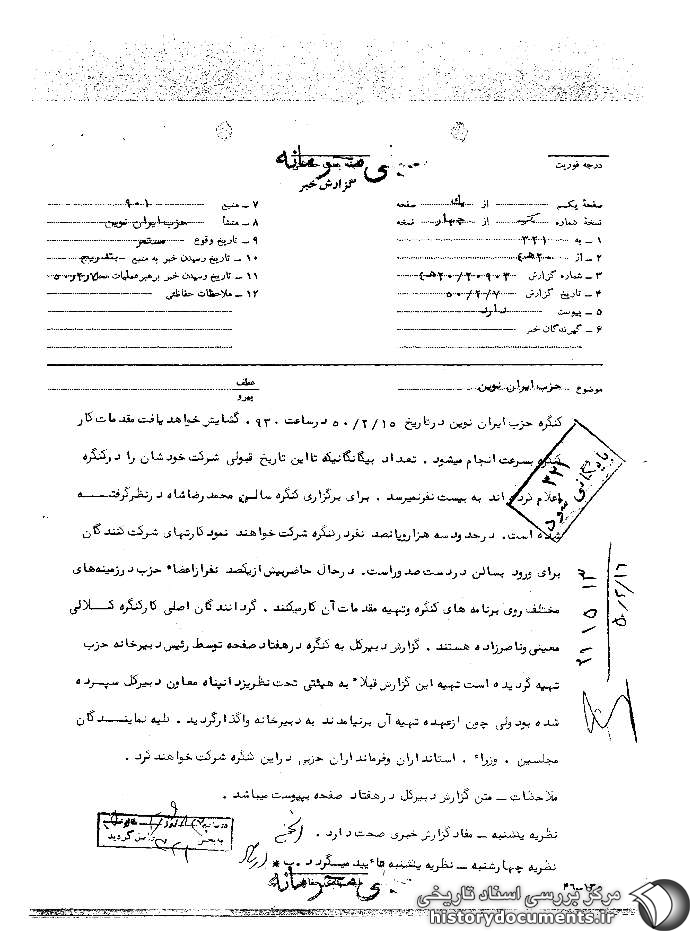 خیلی محرمانه
درجه فوریت
گزارش خبر
صفحهٔ یکم از یک صفحه
نسخهٔ شماره یک از چهار نسخه
۱ ـ به ۳۲۱
۲ ـ از ۲۰ هـ ۴
۳ ـ شماره گزارش ۲۰۹۰۳ / ۲۰ هـ ۴
۴ ـ تاریخ گزارش ۵۰/۲/۷
۵ ـ پیوست دارد
۶ ـ گیرندگان خبر
۷ ـ منبع ۹۰۱
۸ ـ منشأ حزب ایران نوین
۹ ـ تاریخ وقوع مستمر
۱۰ ـ تاریخ رسیدن خبر به منبع بتدریج
۱۱ ـ تاریخ رسیدن خبر برهبر عملیات ۵۰/۲/۷
۱۲ ـ ملاحظات حفاظتی
موضوع حزب ایران نوین
عطف
پیرو
کنگره حزب ایران نوین در تاریخ ۵۰/۲/۱۵ در ساعت ۹۳۰ گشایش خواهد یافت مقدمات کار
کنگره بسرعت انجام میشود . تعداد بیگانگانیکه تا این تاریخ قبولی شرکت خودشان را در کنگره
اعلام کرده اند به بیست نفر نمیرسد . برای برگزاری کنگره سالن محمد رضا شاه در نظر گرفته
شده است . در حدود سه هزار و پانصد نفر در کنگره شرکت خواهند نمود کارتهای شرکت کنندگان
برای ورود بسالن در دست صدور است . در حال حاضر بیش از یکصد نفر از اعضاء حزب در زمینه های
مختلف روی برنامه های کنگره و تهیه مقدمات آن کار میکنند . گردانندگان اصلی کار کنگره کلالی
معینی و ناصر زاده هستند . گزارش دبیرکل به کنگره در هفتاد صفحه توسط رئیس دبیرخانه حزب
تهیه گردیده است تهیه این گزارش قبلا" به هیئتی تحت نظر یزدانپناه معاون دبیرکل سپرده
شده بود ولی چون از عهده تهیه آن برنیامدند به دبیرخانه واگذار گردید . کلیه نمایندگان
مجلسین . وزراء . استانداران و فرمانداران حزبی در این کنگره شرکت خواهند کرد .
ملاحظات ـ متن گزارش دبیرکل در هفتاد صفحه بپیوست میباشد .
نظریه یکشنبه ـ مفاد گزارش خبری صحت دارد .
نظریه چهارشنبه ـ نظریه یکشنبه تائید میگردد . ب *
بایگانی شود
۳۲۲
۵۰/۲/۱۶
خیلی محرمانه
مرکز بررسی اسناد تاریخی
historydocuments.ir